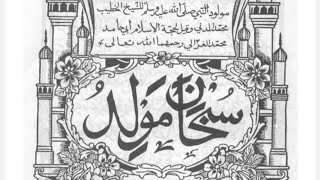 مولود النبي صلى الله عليه وسلم للشيخ الخطيب
محمد المدني وقيل لحجة الاسلام أبي حامد
محمد الغزالي رحمهما الله تعالى
سبحان مولد